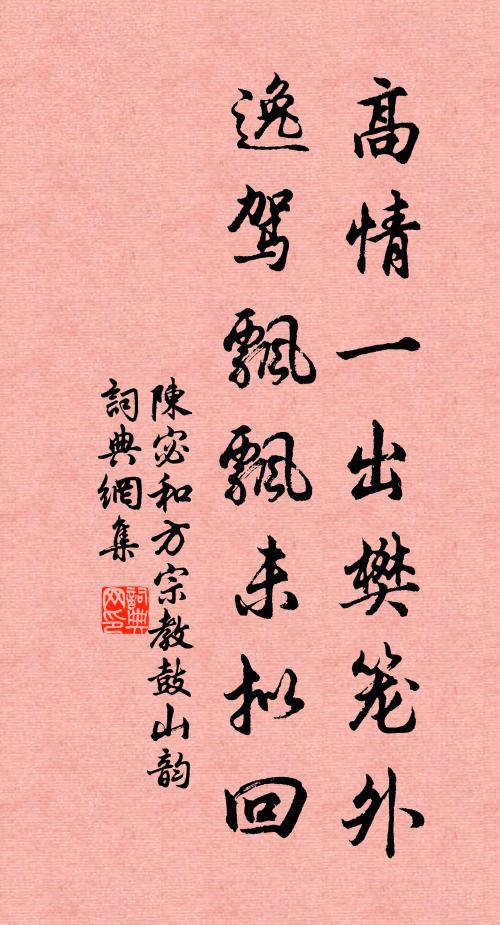 高情一出樊笼外
逸驾飘飘未拟回
陳宓和方宗教鼓山韵
詞典網集
詞典网印